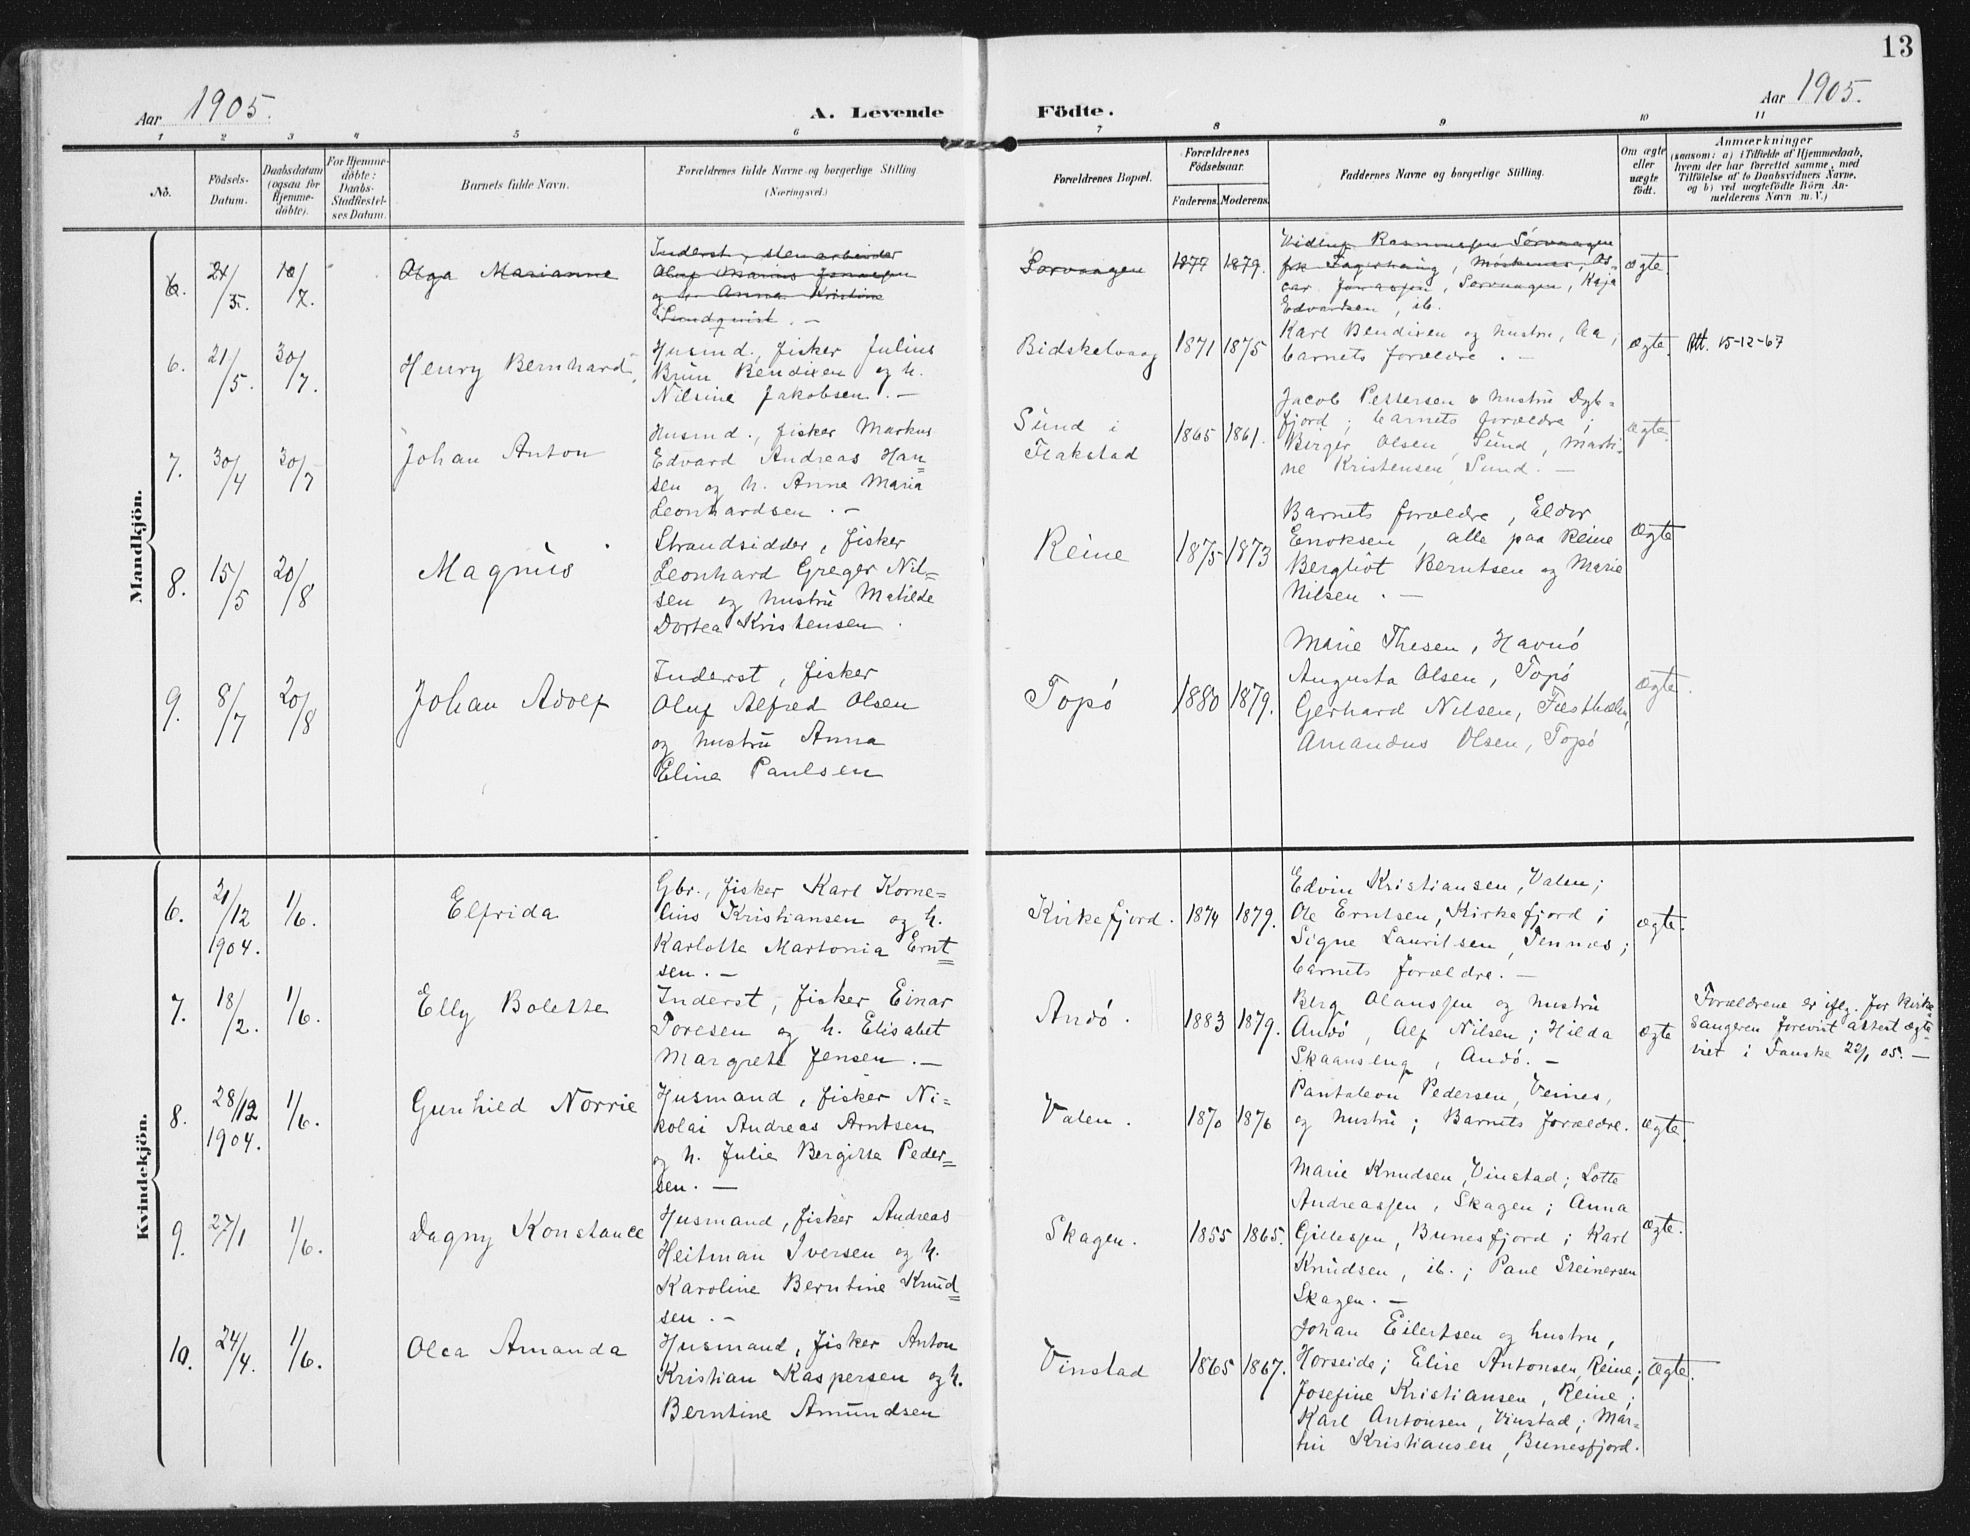 13
Aar 1905.
A. Levende
Födte.
Aar 1905.
1 2 3 4 5 6 7 8 9 10 11
No.
Födsels-
Datum.
Daabsdatum
(ogsaa for
Hjemme-
döbte).
For Hjemme-
döbte:
Daabs-
Stadfæstel-
ses Datum.
Barnets fulde Navn.
Forældrenes fulde Navne og borgerlige Stilling
(Næringsvei.)
Forældrenes Bopæl.
Forældrenes
Födselsaar.
Faderens. Moderens.
Faddernes Navne og borgerlige Stilling.
Om ægte
eller
uægte
födt.
Anmærkninger
(saasom: a) i Tilfælde af Hjemmedaab,
hvem der har forrettet samme, med
Tilföielse af to Daabsvidners Navne,
og b) ved uægtefödte Börn An-
melderens Navn m. V.)
Mandkjön.
6.
Olga Marianne
Inderst,
Anna Kristine
Sundquist. —
Sorvaagen
1877 1879.
Edvardsen, ib.
ægte.
6. 21/5. 30/7.
Henry Bernhard
Husmd., fisker Julius
Brun Bendixen og h.
Nilsine Jakobsen. —
Bidskelvaag
1871 1875
Karl Bendixen og hustru, Aa,
barnets forældre. —
ægte.
Att. 15-12-67
7. 30/4 30/7
Johan Anton
Husmd., fisker Markus
Edvard Andreas Han=
sen og h. Anna Maria
Leonhardsen. —
Sund i
Flakstad
1865 1861.
Jacob Pettersen & hustru Dyb=
fjord; barnets forældre;
Berger Olsen, Sund, Marti=
ne Kristensen, Sund. —
ægte.
8. 15/5 20/8
Magnus
Strandsidder, fisker
Leonhard Greger Nil=
sen og hustru Matilde
Dortea Kristensen.
Reine
1875 1873
Barnets forældre, Eldor
Enoksen, alle paa Reine
Bergliot Berntsen og Marie
Nilsen. —
Ægte
9. 8/7 20/8
Johan Adolf
Inderst, fisker
Oluf Alfred Olsen
og hustru Anna
Eline Paulsen
Topö
1880 1879.
Marie Thesen, Havnö
Augusta Olsen, Topö
Gerhard Nilsen,
Amandus Olsen, Topö
Ægte.
Kvindekjön.
6. 21/12 1904. 1/6.
Elfrida
Gbr., fisker Karl Korne=
lius Kristiansen og h.
Karlotte Martonia Ernt=
sen. —
Kirkefjord.
1874 1879.
Edvin Kristiansen, Valen;
Ole Erntsen, Kirkefjord;
Signe Lauritsen, Tennes;
barnets forældre. —
ægte.
7. 18/2. 1/6.
Elly Bolette
Inderst, fisker Einar
Toresen og h. Elisabet
Margrete Jensen. —
Andö.
1883 1879.
Berg Olaussen og hustru
Andö, Alf Nilsen; Hilda
Skaanseng, Andö. —
ægte
Forældrene er iflg. for kirke=
sangeren forevist attest ægte=
viet i Fauske 22/1 05. —
8. 28/12 1904. 1/6.
Gunhild Norrie
Husmand, fisker Ni=
kolai Andreas Arntsen
og h. Julie Bergitte Peder=
sen. —
Valen.
1870 1876
Pantaleon Pedersen, Veines,
og hustru; Barnets forældre.
ægte.
9. 27/1 1/6.
Dagny Konstance
Husmand, fisker Andreas
Heitman Iversen og h.
Karoline Berntine Knud=
sen. —
Skagen.
1855 1865.
Marie Knudsen, Vinstad; Lotte
Andreassen, Skagen; Anna
Gillessen, Bunesfjord; Karl
Knudsen, ib.; Paul Steinersen
Skagen. —
ægte.
10. 24/4. 1/6.
Olea Amanda
Husmand, fisker Anton
Kristian Kaspersen og h.
Berntine Amundsen
Vinstad
1865 1867.
Johan Eilertsen og hustru,
Horseide; Elise Antonsen, Reine;
Josefine Kristiansen, Reine;
Karl Antonsen, Vinstad; Mar=
tin Kristiansen, Bunesfjord.
Ægte.